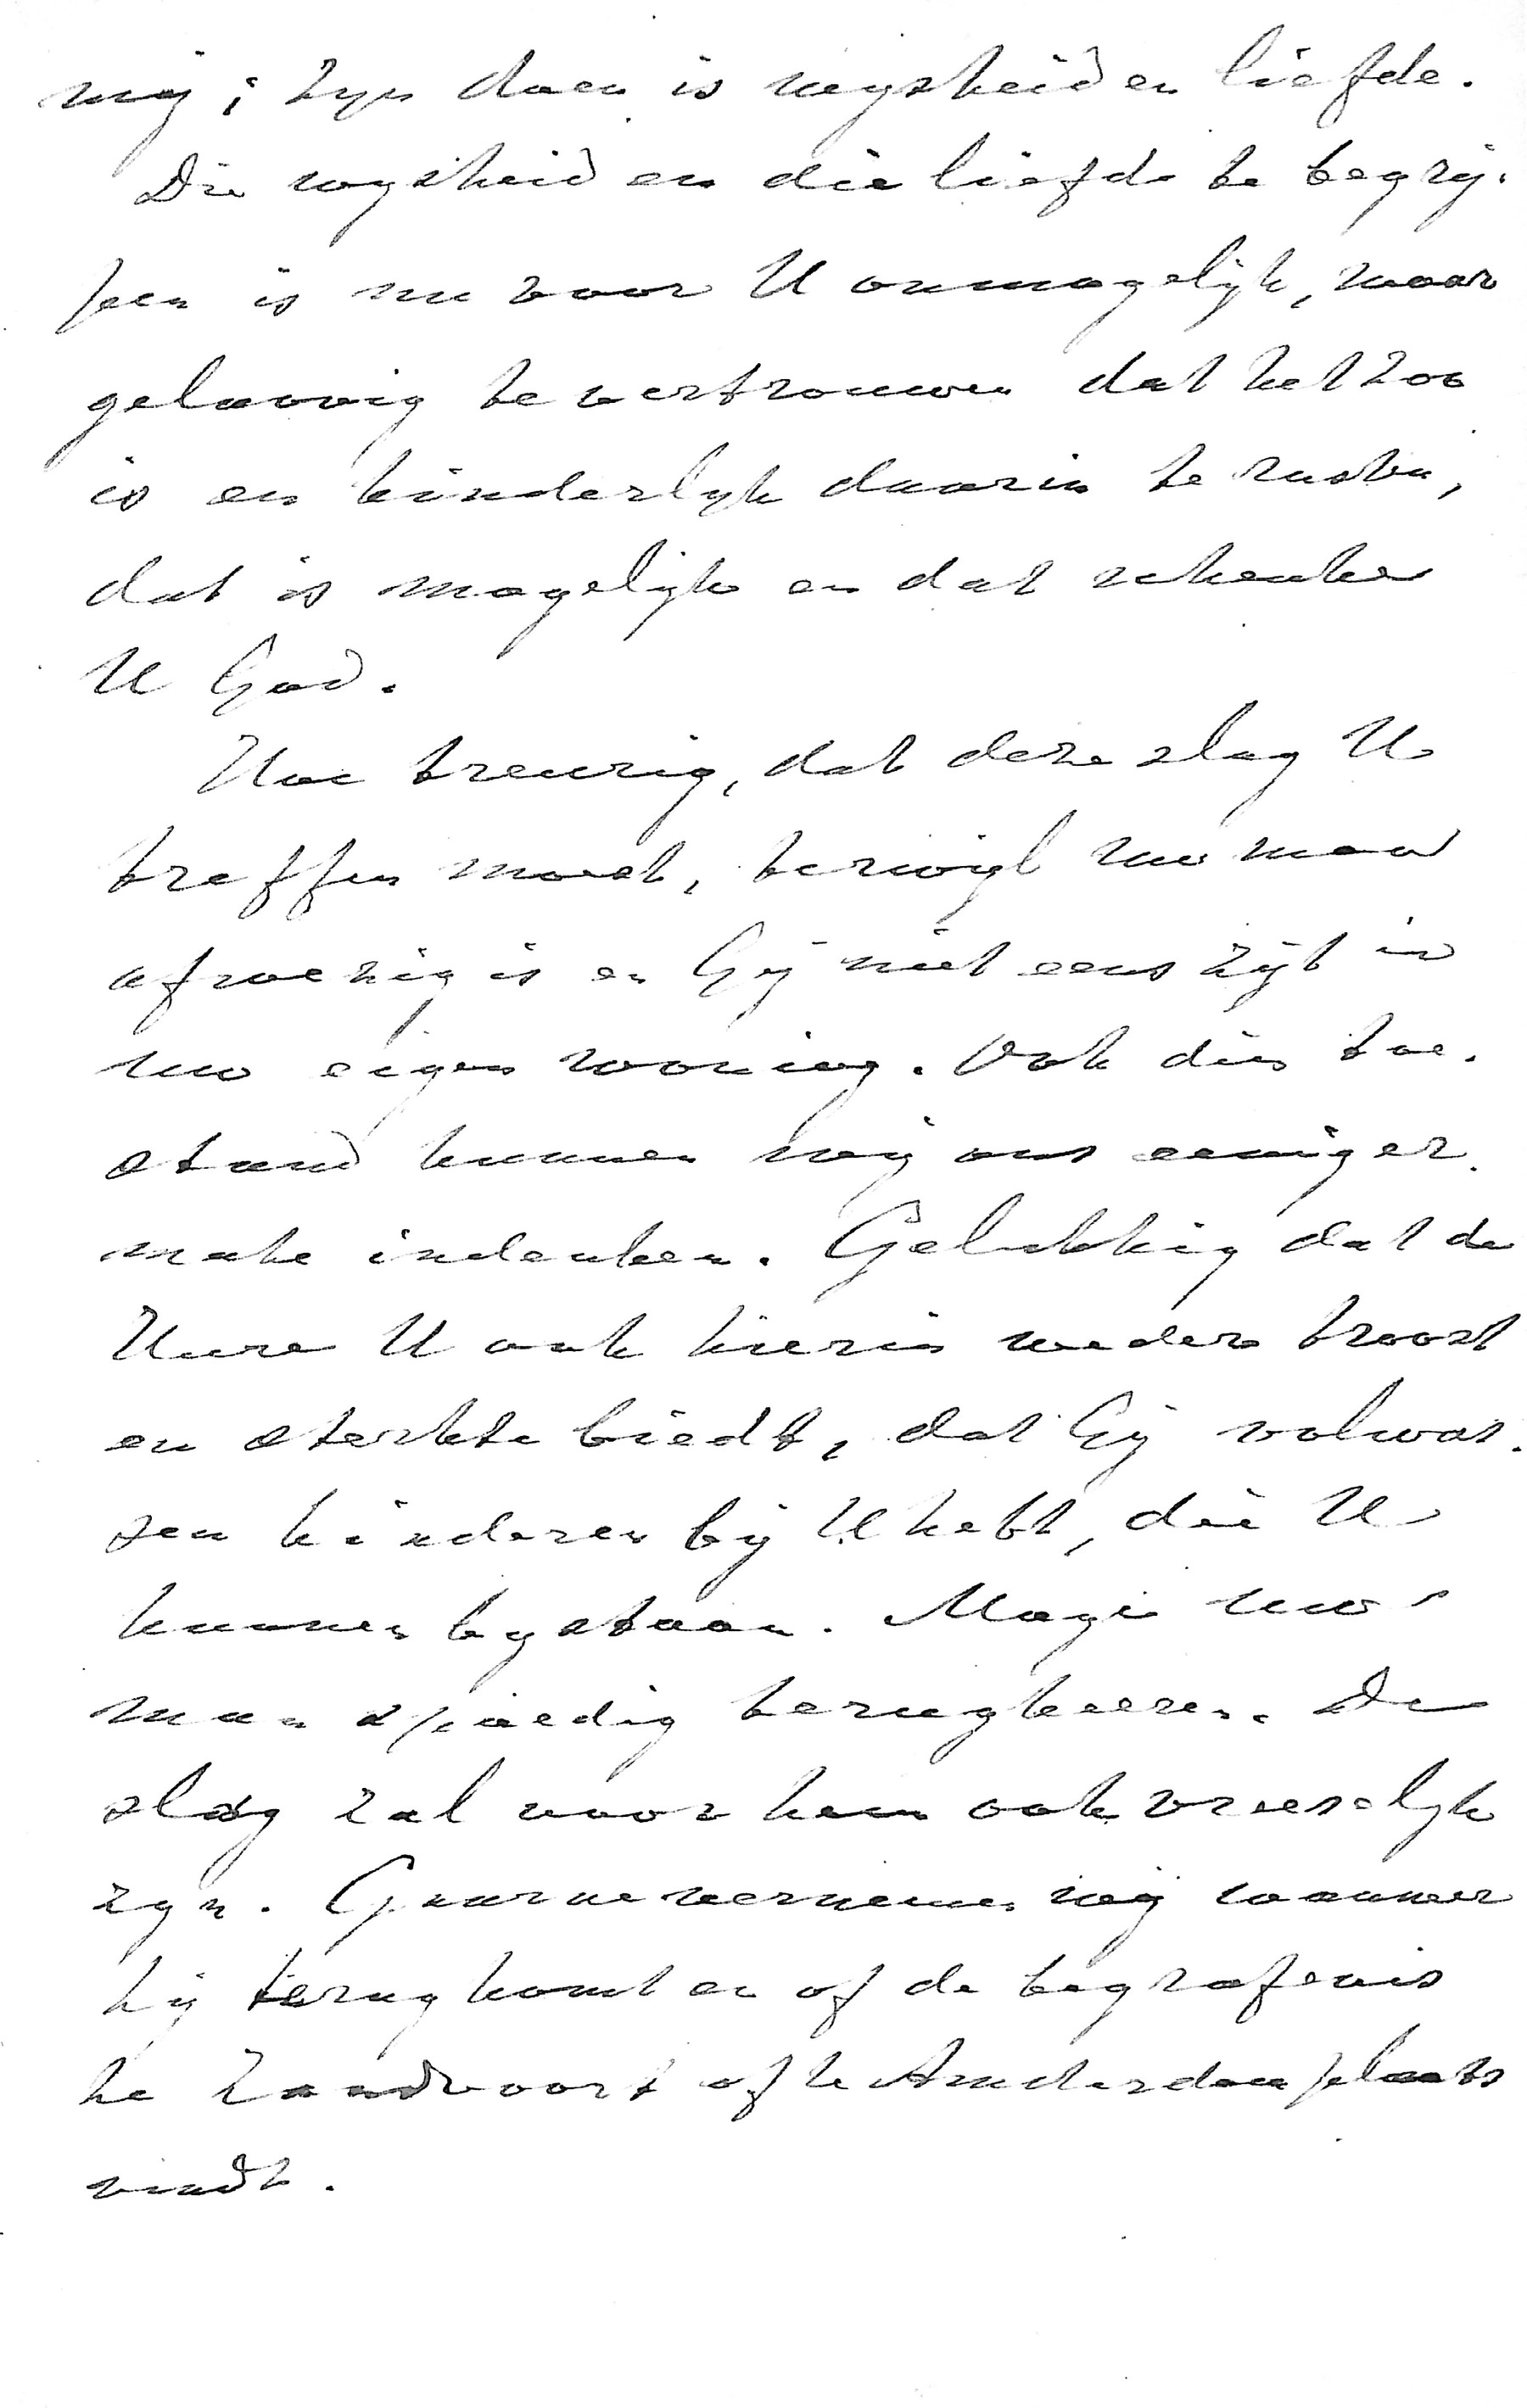 mij; zyn doen is wysheid en liefde.
Die wysheid en die liefde te begrij-
pen is nu voor U onmogelijk, maar
geloovig te vertrouwen dat het zoo
is en kinderlyk daarin te rusten,
dat is mogelijk en dat schenke
U God.
Hoe treurig, dat deze slag U
treffen moest, terwijl uw man
afwezig is en Gij niet eens zijt in
uw eigen woning. Ook dien toe-
stand kunnen wij ons eeniger-
mate indenken. Gelukkig dat de
Heere U ook hierin weder troost
en sterkte biedt, dat Gij volwas-
sen kinderen bij U hebt, die U
kunnen bystaan. Moge uw
man spoedig terugkeeren. De
slag zal voor hem ook vreeselyk
zyn. Gaarne vernemen wij wanneer
hij terug komt en of de begrafenis
te Zandvoort of te Amsterdam plaats
vindt.